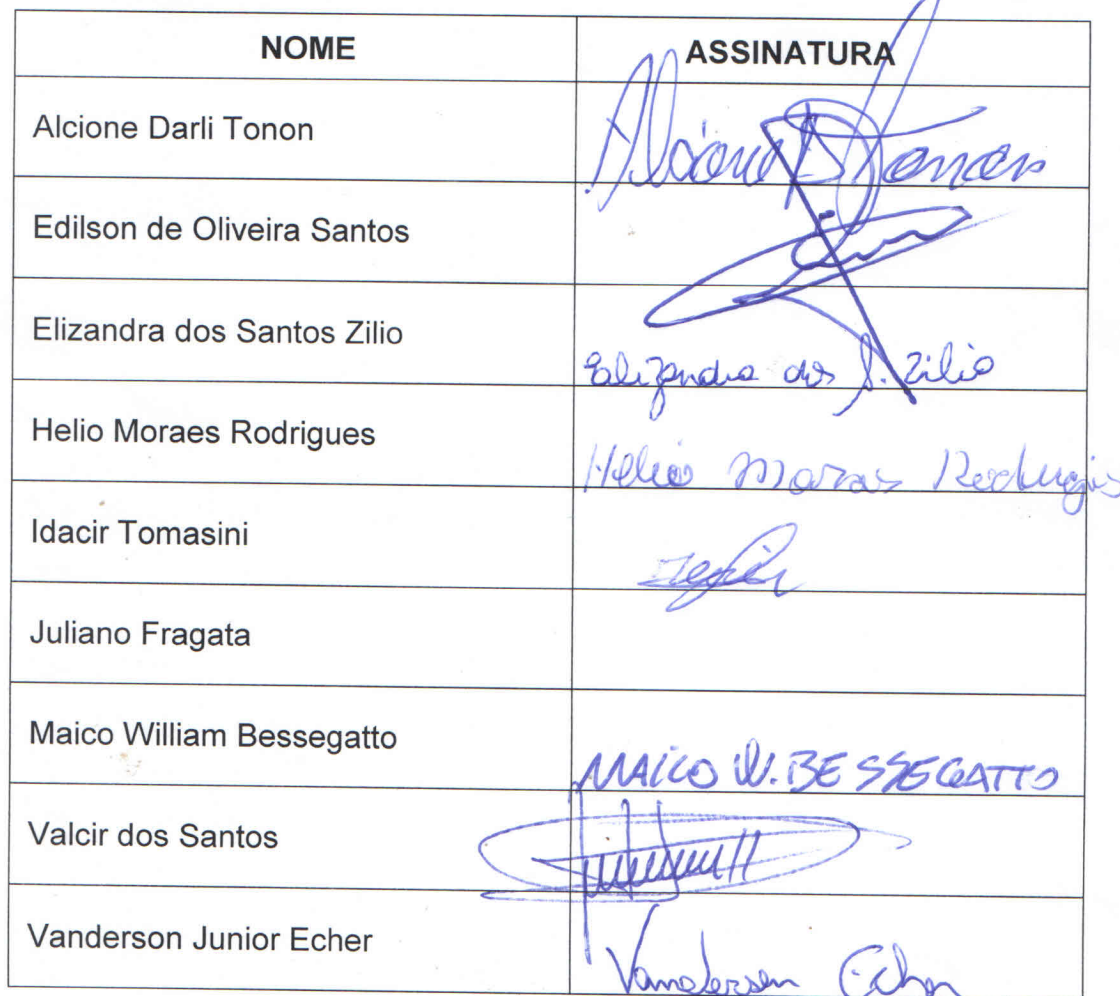 NOME ASSINATURA
Alcione Darli Tonon Alcione D Tonon
Edilson de Oliveira Santos
Elizandra dos Santos Zilio Elizandra dos S. Zilio
Helio Moraes Rodrigues Helio Moraes Rodrugis
Idacir Tomasini
Juliano Fragata
Maico William Bessegatto MAICO W. BESSEGATTO
Valcir dos Santos
Vanderson Junior Echer Vanderson Echer